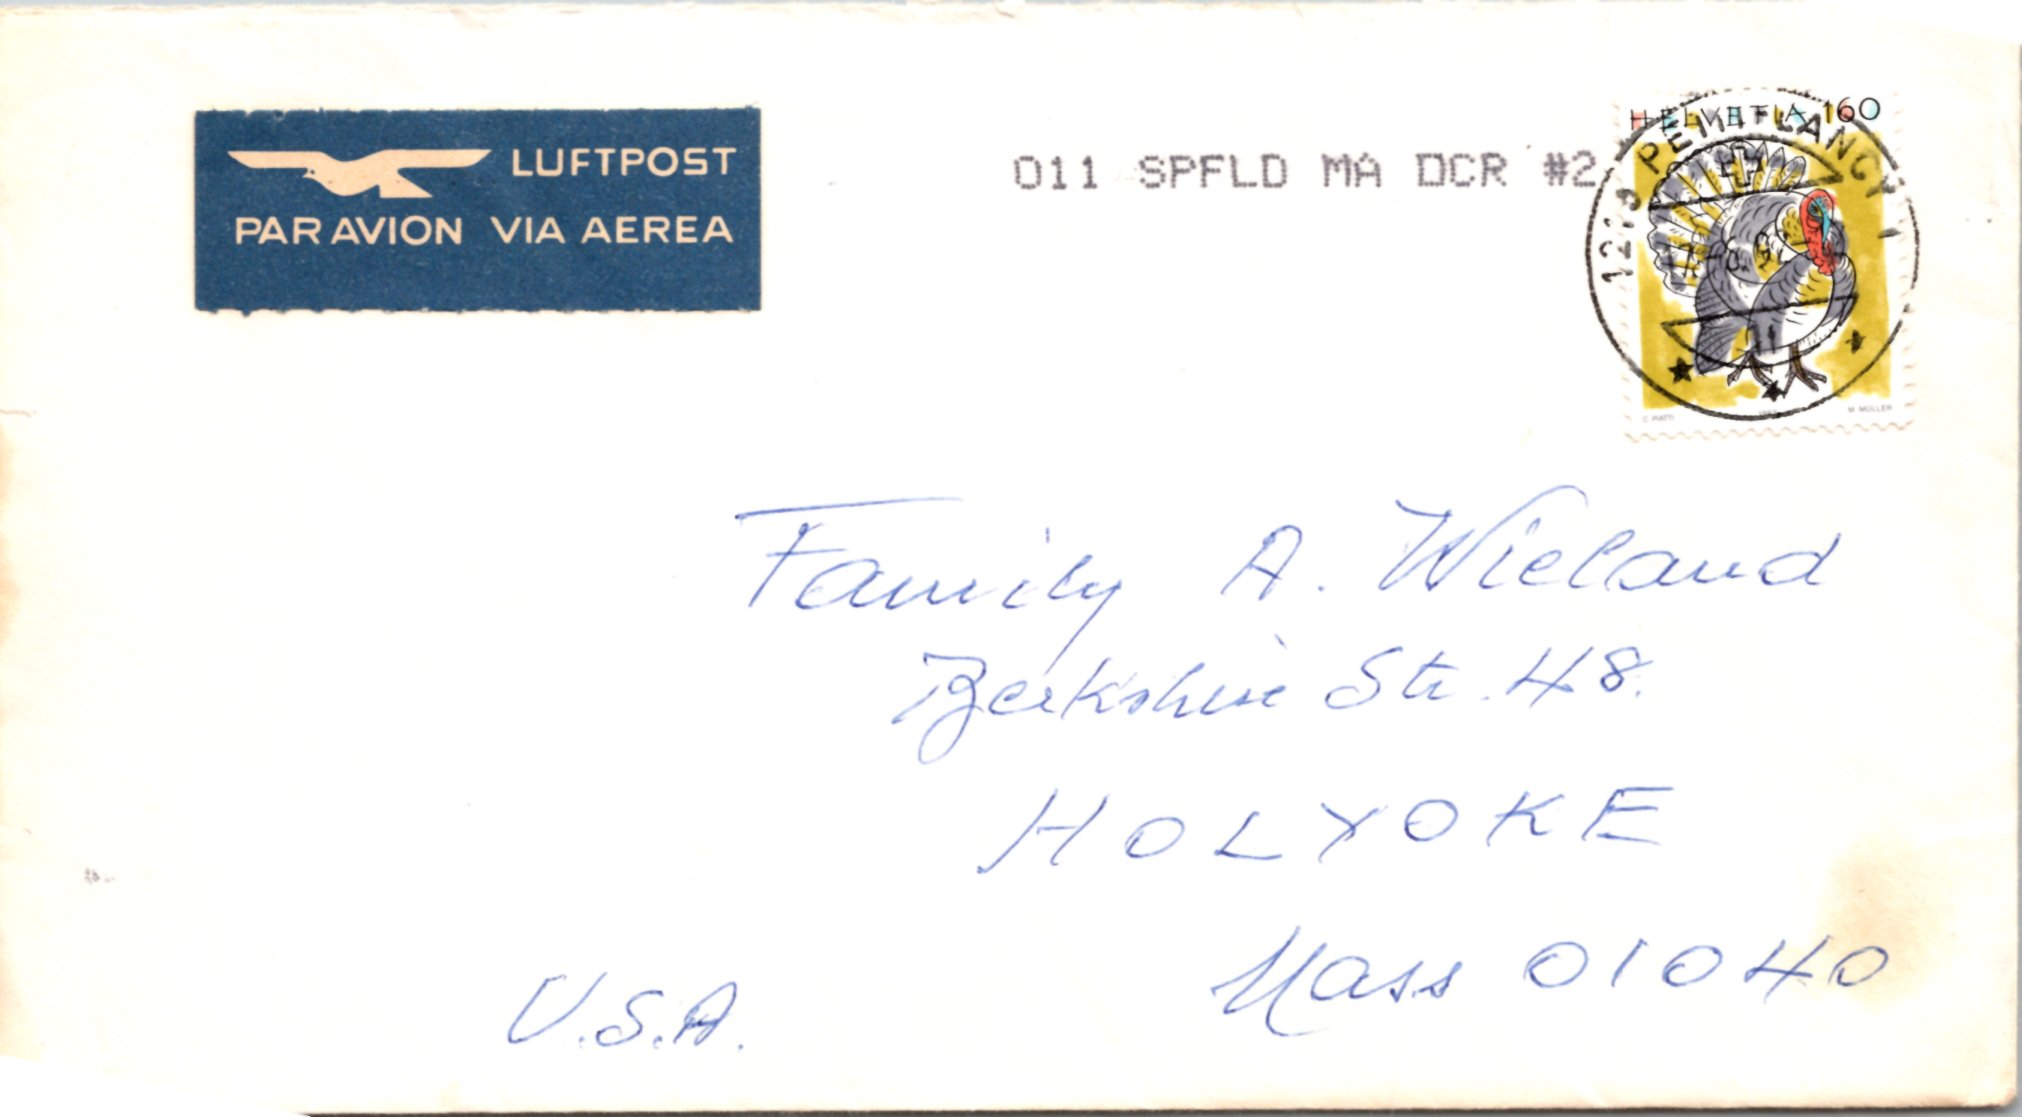 LUFTPOST
PAR AVION VIA AEREA
011 SPFLD MA DCR #2
HELVETIA 160
1213 PETIT-LANCY 1
C. PIATTI
M. MÜLLER
Family A. Wieland
Berkshire Str. 48.
HOLYOKE
Mass 01040
U.S.A.